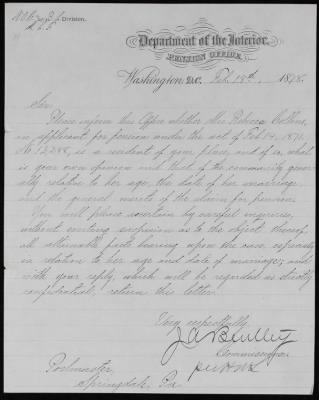 Division.
Department of the Interior,
PENSION OFFICE,
Washington D.C. Feb. 18th, 1878.
Sir:
Please inform this Office whether Mrs. Rebecca Collins,
an applicant for pension under the act of Feb 14, 1871,
No. 13,288, is a resident of your place, and if so, what
is your own opinion and that of the community gener-
ally relative to her age, the date of her marriage
and the general merits of the claim for pension.
You will please ascertain by careful inquiries,
without exciting suspicion as to the object thereof
all attainable facts bearing upon the case, especially
in relation to her age and date of marriage; and
with your reply, which will be regarded as strictly
confidential, return this letter.
Very respectfully,
J A Bentley
Commissioner
Postmaster,
Springdale, Pa